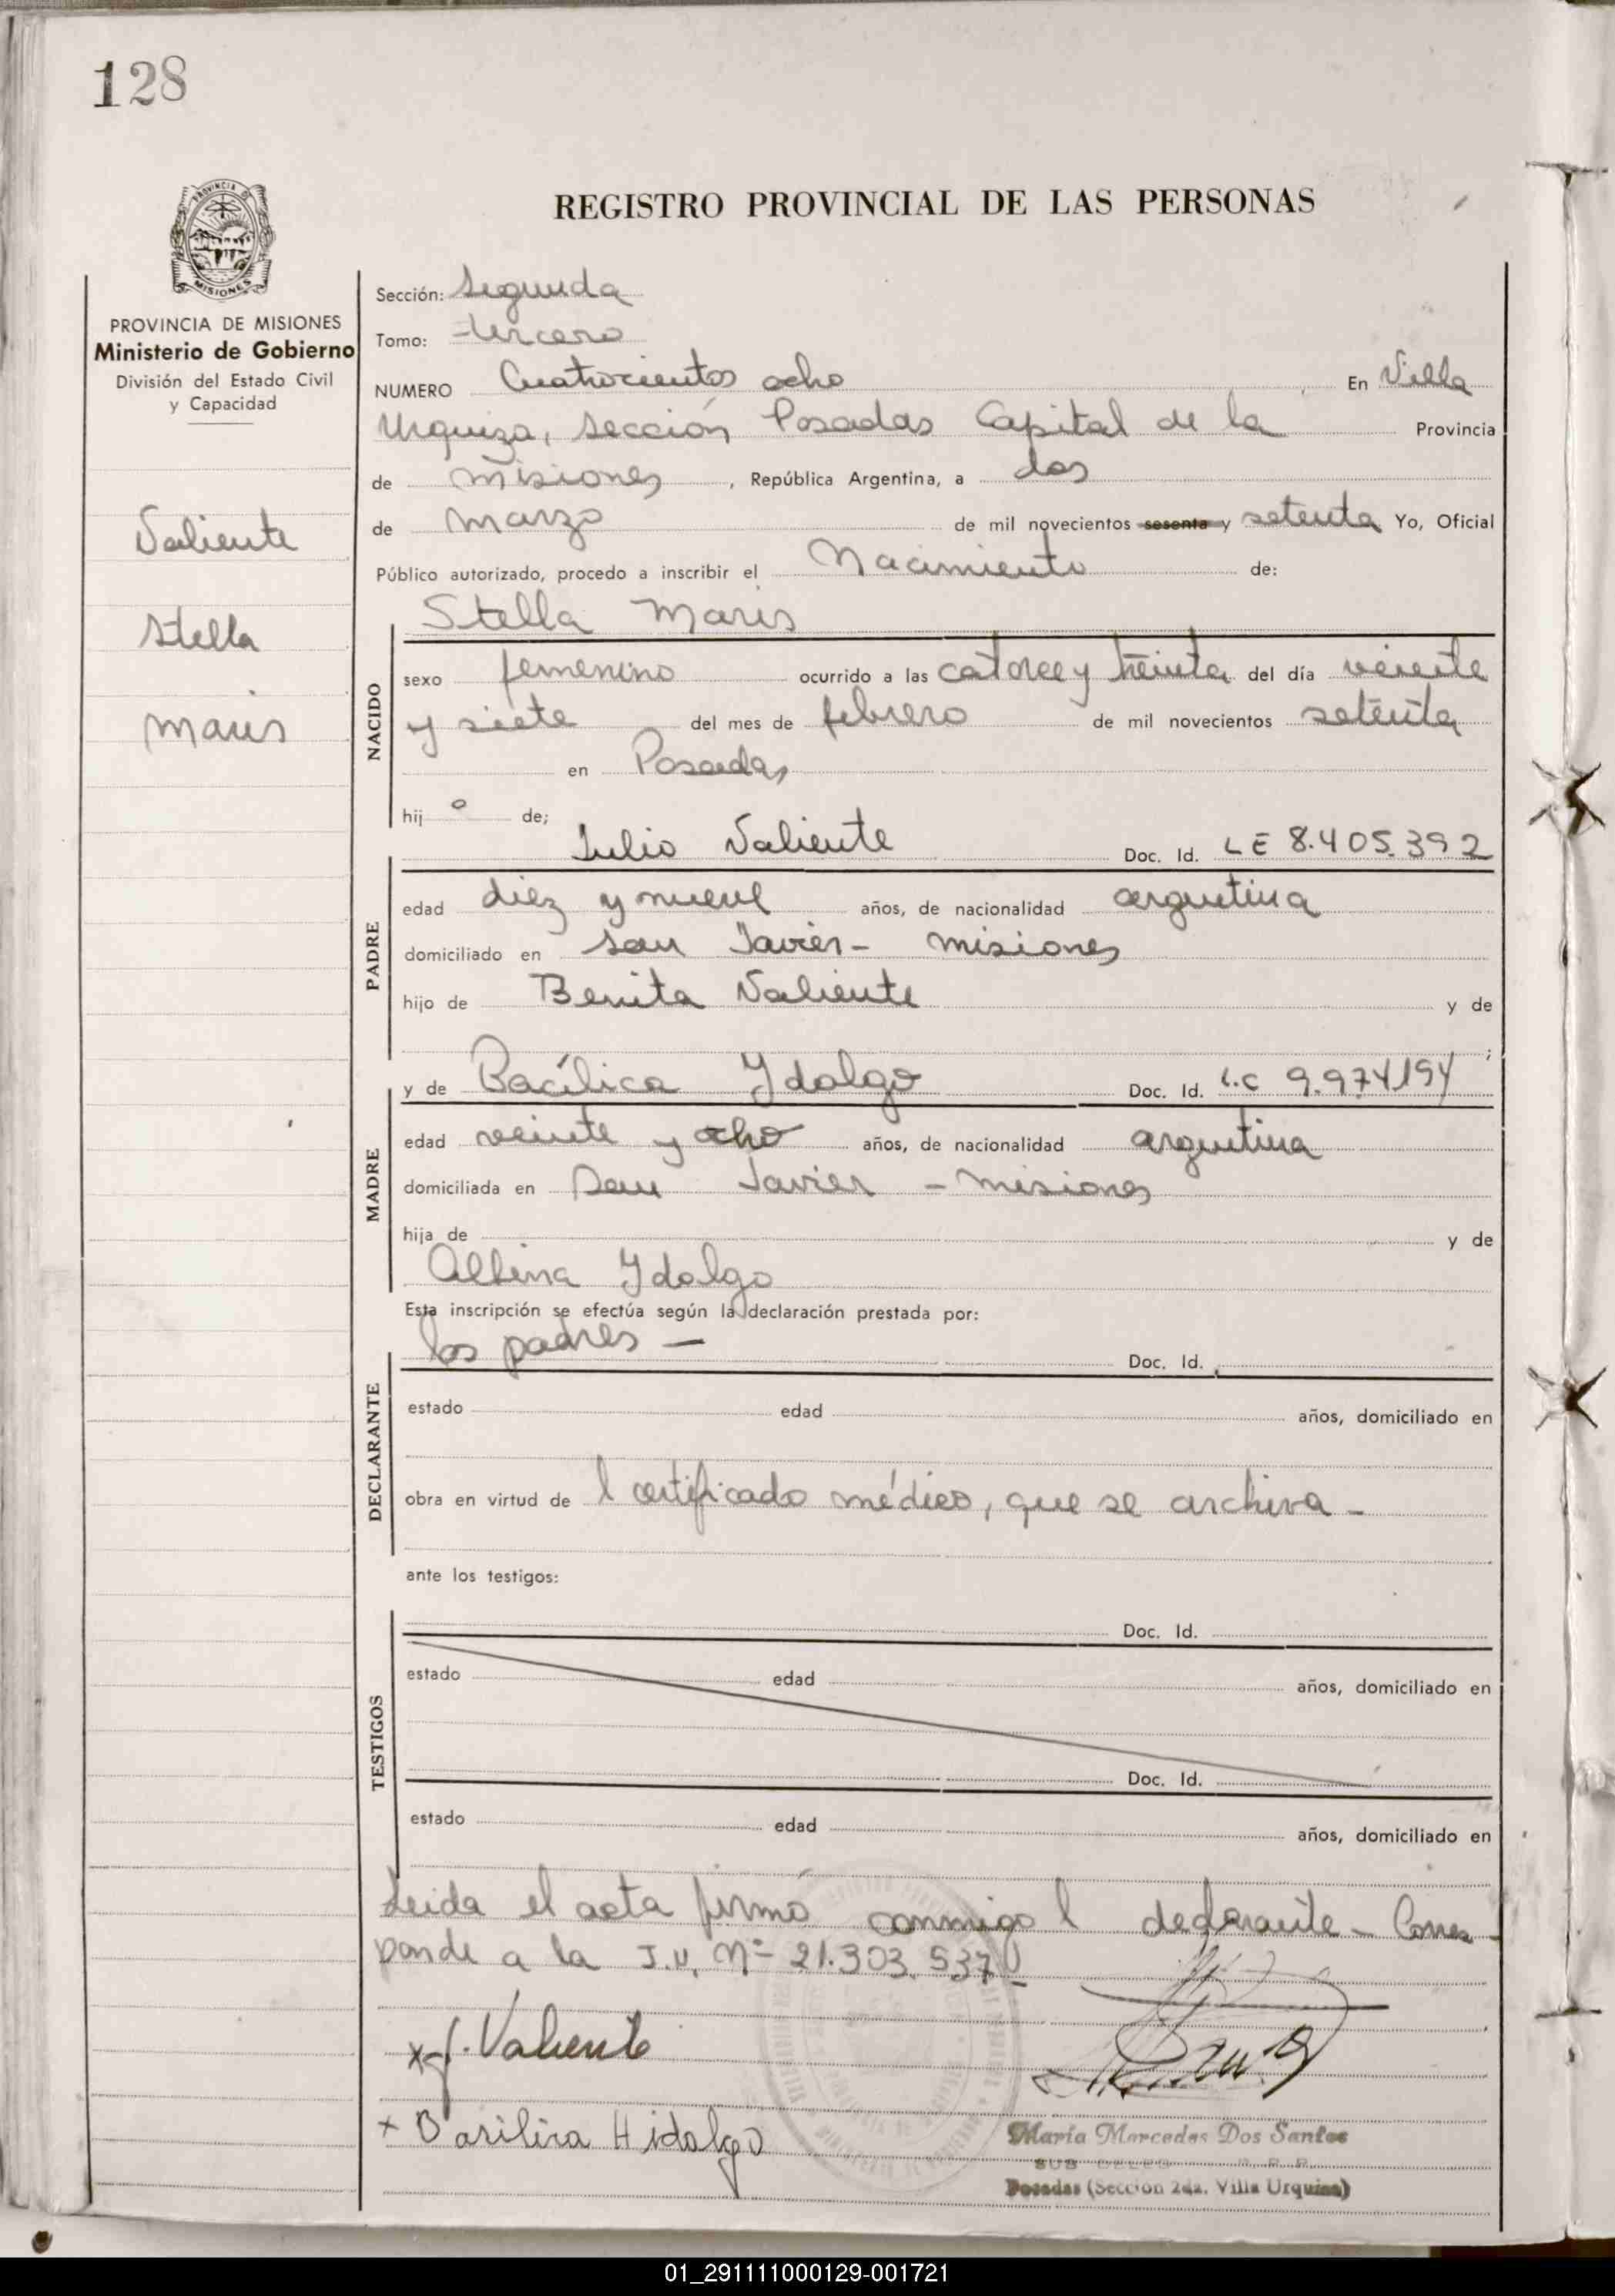 128
REGISTRO PROVINCIAL DE LAS PERSONAS
PROVINCIA DE MISIONES
Ministerio de Gobierno
División del Estado Civil
y Capacidad
Valiente
Stella
Maris
Sección: Segunda
Tomo: tercero
NUMERO Cuatrocientos ocho En Villa
Urquiza, Sección Posadas Capital de la Provincia
de Misiones, República Argentina, a dos
de Marzo de mil novecientos sesenta y setenta Yo, Oficial
Público autorizado, procedo a inscribir el Nacimiento de:
Stella Maris
NACIDO
sexo femenino ocurrido a las catorce y treinta del día veinte
y siete del mes de febrero de mil novecientos setenta
en Posadas
hij a de;
Julio Valiente Doc. Id. LE 8.405.392
PADRE
edad diez y nueve años, de nacionalidad argentina
domiciliado en San Javier - Misiones
hijo de Benita Valiente y de
;
y de Bacílica Ydalgo Doc. Id. L.C 9.974194
MADRE
edad veinte y ocho años, de nacionalidad argentina
domiciliada en San Javier - Misiones
hija de y de
Albina Ydalgo
Esta inscripción se efectúa según la declaración prestada por:
los padres — Doc. Id.
DECLARANTE
estado edad años, domiciliado en
obra en virtud de l certificado médico, que se archiva -
ante los testigos:
Doc. Id.
TESTIGOS
estado edad años, domiciliado en
Doc. Id.
estado edad años, domiciliado en
Leida el acta firmó conmigo l declarante - Corres-
ponde a la I.U. Nº 21.303.537
x J. Valiente
x Basilisa Hidalgo
María Mercedes Dos Santos
Posadas (Seccion 2da. Villa Urquiza)
01_291111000129-001721